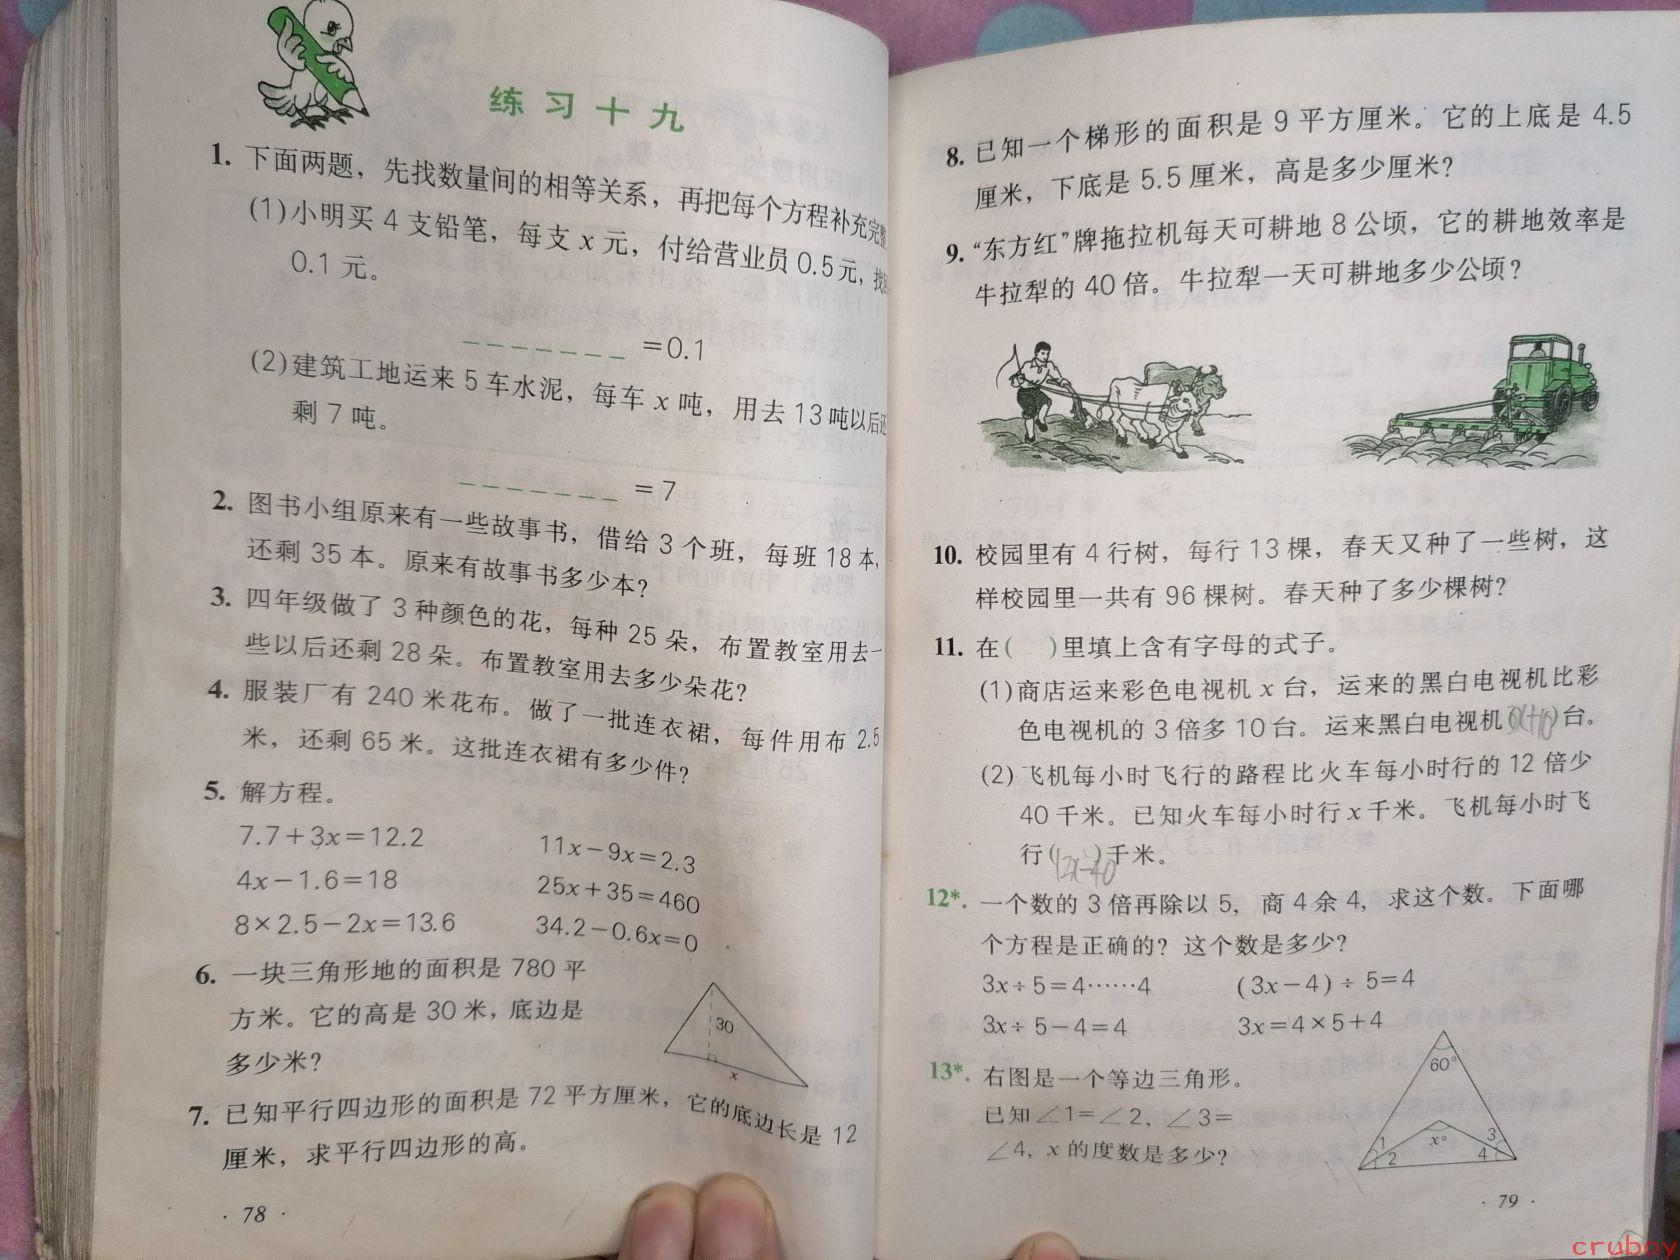 练习十九
1. 下面两题，先找数量间的相等关系，再把每个方程补充完整
(1)小明买 4 支铅笔，每支 x 元，付给营业员 0.5元，找回
0.1 元。
_ _ _ _ _ _ _ =0.1
(2)建筑工地运来 5 车水泥，每车 x 吨，用去 13 吨以后还
剩 7 吨。
_ _ _ _ _ _ _ =7
2. 图书小组原来有一些故事书，借给 3 个班，每班 18 本，
还剩 35 本。原来有故事书多少本?
3. 四年级做了 3 种颜色的花，每种 25 朵，布置教室用去一
些以后还剩 28 朵。布置教室用去多少朵花?
4. 服装厂有 240 米花布。做了一批连衣裙，每件用布 2.5
米，还剩 65 米。这批连衣裙有多少件?
5. 解方程。
7.7+3x=12.2 11x-9x=2.3
4x-1.6=18 25x+35=460
8×2.5-2x=13.6 34.2-0.6x=0
6. 一块三角形地的面积是 780 平
方米。它的高是 30 米，底边是
多少米?
30
x
7. 已知平行四边形的面积是 72 平方厘米，它的底边长是 12
厘米，求平行四边形的高。
· 78 ·
8. 已知一个梯形的面积是 9 平方厘米。它的上底是 4.5
厘米，下底是 5.5 厘米，高是多少厘米?
9. “东方红”牌拖拉机每天可耕地 8 公顷，它的耕地效率是
牛拉犁的 40 倍。牛拉犁一天可耕地多少公顷?
10. 校园里有 4 行树，每行 13 棵，春天又种了一些树，这
样校园里一共有 96 棵树。春天种了多少棵树?
11. 在( )里填上含有字母的式子。
(1)商店运来彩色电视机 x 台，运来的黑白电视机比彩
色电视机的 3 倍多 10 台。运来黑白电视机(3x+10)台。
(2)飞机每小时飞行的路程比火车每小时行的 12 倍少
40 千米。已知火车每小时行 x 千米。飞机每小时飞
行(12x-40)千米。
12*. 一个数的 3 倍再除以 5，商 4 余 4，求这个数。下面哪
个方程是正确的? 这个数是多少?
3x÷5=4······4 (3x-4)÷5=4
3x÷5-4=4 3x=4×5+4
13*. 右图是一个等边三角形。
已知∠1=∠2，∠3=
∠4，x 的度数是多少?
60°
1 x° 3
2 4
· 79 ·
cruboy